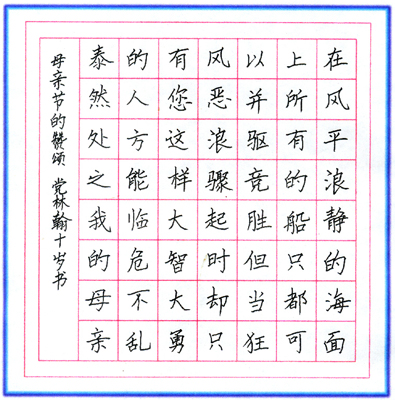 在风平浪静的海面
上所有的船只都可
以并驱竞胜但当狂
风恶浪骤起时却只
有您这样大智大勇
的人方能临危不乱
泰然处之我的母亲
母亲节的赞颂 党林翰十岁书